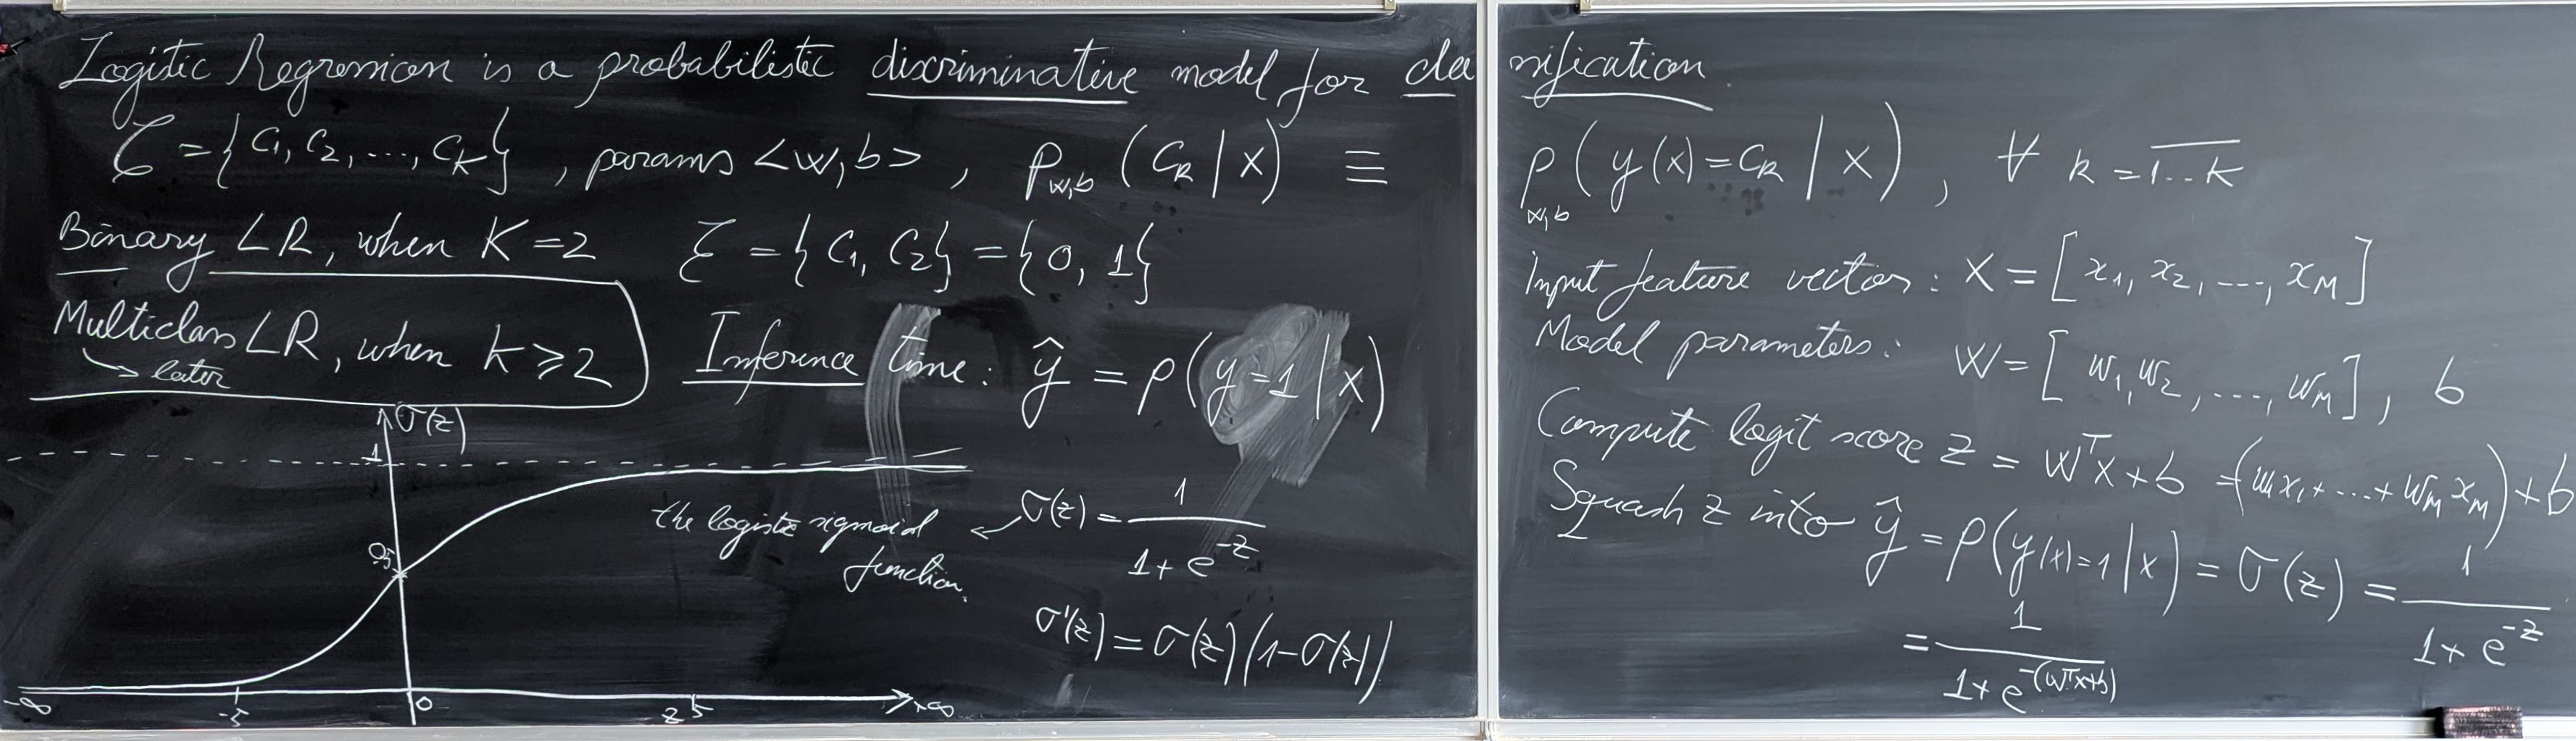 Logistic Regression is a probabilistic discriminative model for classification
C = {C1, C2, ..., CK}, params <w, b>, p_w,b (Ck | x) ≡ p_w,b (y(x) = Ck | x), ∀ k = 1...K
Binary LR, when K = 2
C = {C1, C2} = {0, 1}
Multiclass LR, when K ⩾ 2
→ later
Inference time: ŷ = p(y=1 | x)
σ(z)
1
0.5
-∞ -5 0 z 5 +∞
the logistic sigmoid function.
← σ(z) = 1 / (1 + e^-z)
σ'(z) = σ(z)(1-σ(z))
Input feature vector: X = [x1, x2, ..., xM]
Model parameters: W = [w1, w2, ..., wM], b
Compute logit score z = W^T X + b = (w1x1 + ... + wM xM) + b
Squash z into ŷ = p(y(x)=1 | x) = σ(z) = 1 / (1 + e^-z)
= 1 / (1 + e^-(W^T x + b))